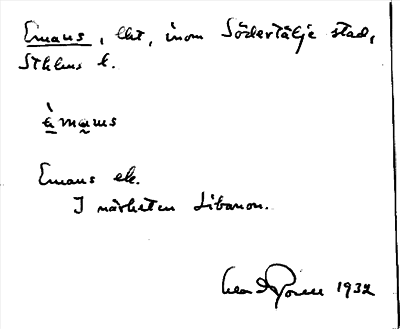 Emaus, lht, inom Södertälje stad,
Sthlms l.
èmaus
Emaus ek.
I närheten Libanon.
1932